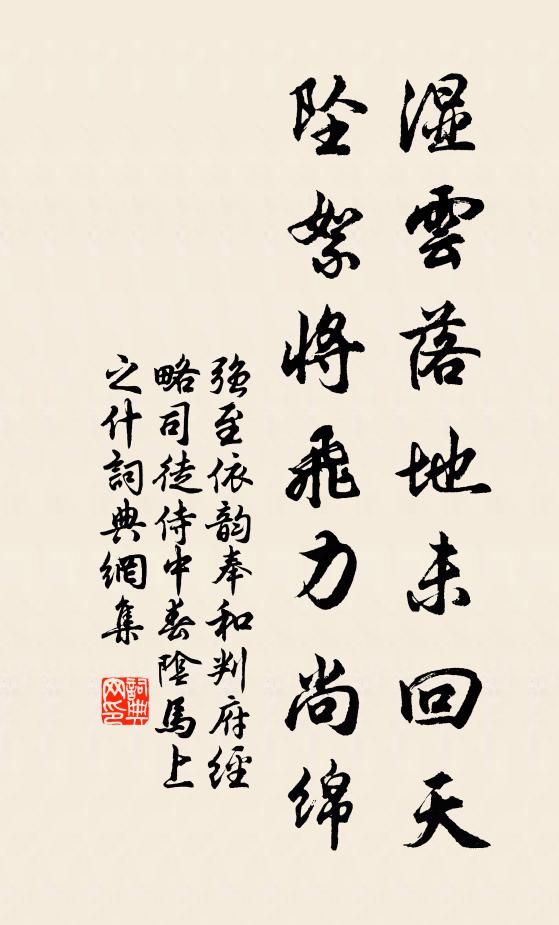 湿雲落地未回天
坠絮將飛力尚綿
強至依韵奉和判府經
略司徒侍中春陰馬上
之什詞典網集
詞典
网印